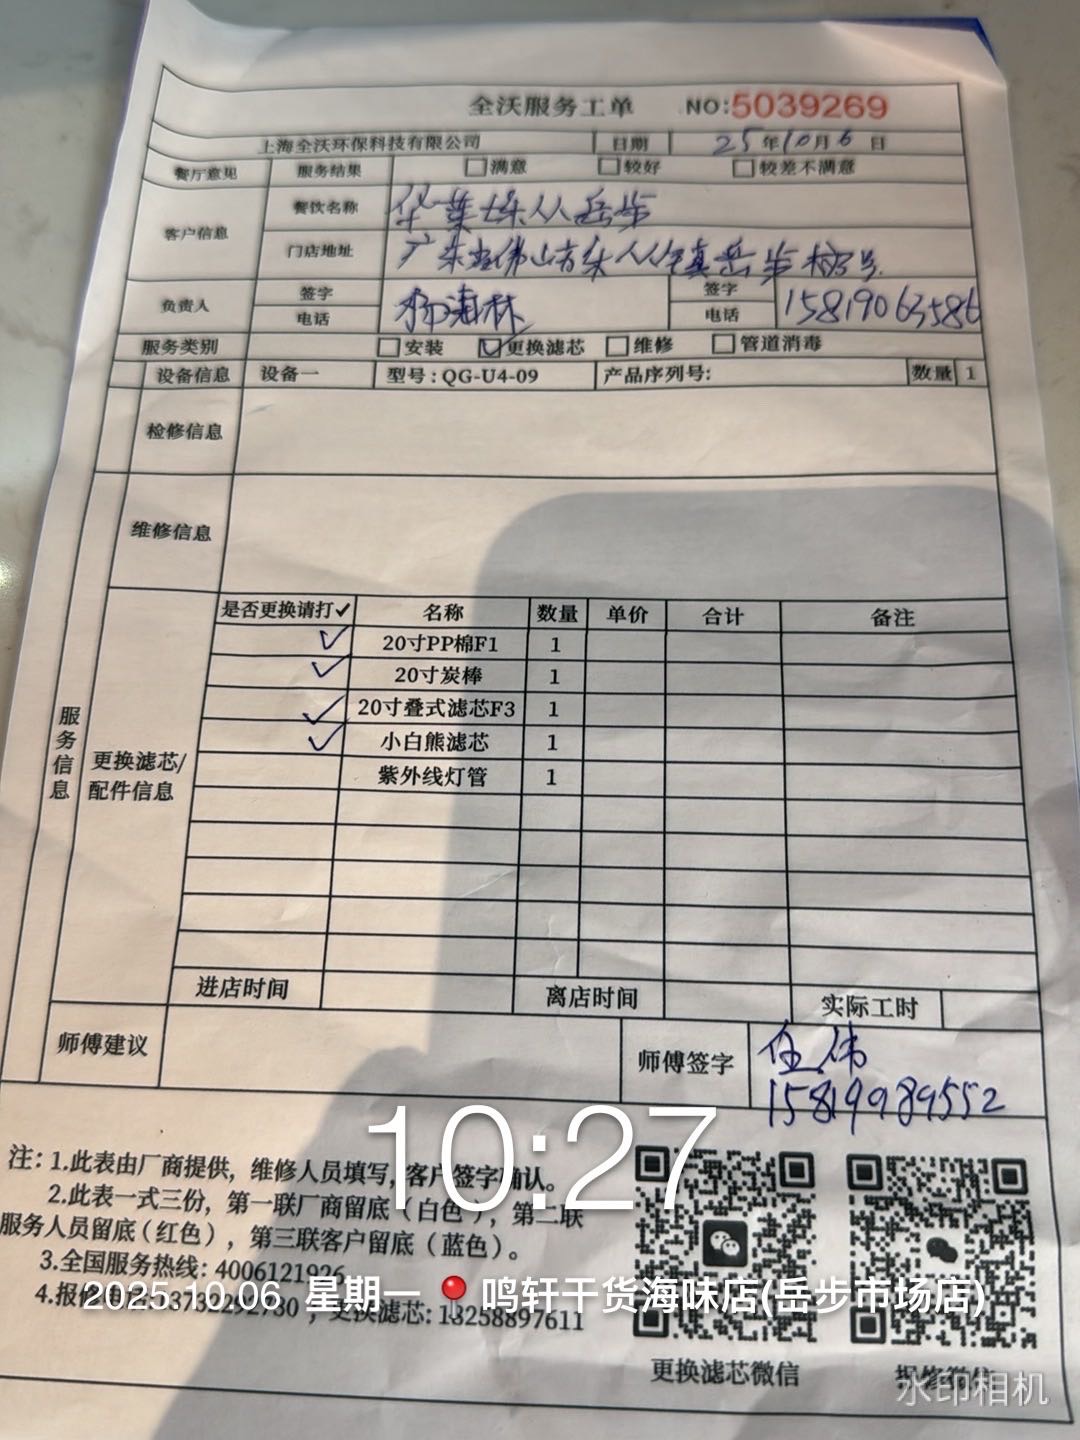 全沃服务工单 NO:5039269
上海全沃环保科技有限公司 日期 25年10月6日
餐厅意见 服务结果 满意 较好 较差不满意
客户信息 餐饮名称 华莱士 岳步
门店地址 广东 佛山市 镇岳步 号
负责人 签字 电话 杨海林 签字 电话 15819063586
服务类别 安装 更换滤芯 维修 管道消毒
设备信息 设备一 型号:QG-U4-09 产品序列号: 数量 1
检修信息
维修信息
服务信息
更换滤芯/配件信息
是否更换请打✓ 名称 数量 单价 合计 备注
✓ 20寸PP棉F1 1
✓ 20寸炭棒 1
✓ 20寸叠式滤芯F3 1
✓ 小白熊滤芯 1
紫外线灯管 1
进店时间 离店时间 实际工时
师傅建议 师傅签字 任伟
15819989552
10:27
注:1.此表由厂商提供,维修人员填写,客户签字确认。
2.此表一式三份,第一联厂商留底(白色),第二联
服务人员留底(红色),第三联客户留底(蓝色)。
3.全国服务热线:4006121926
4.报修 ,更换滤芯:13258897611
2025.10.06 星期一 鸣轩干货海味店(岳步市场店)
更换滤芯微信 报修微信
水印相机